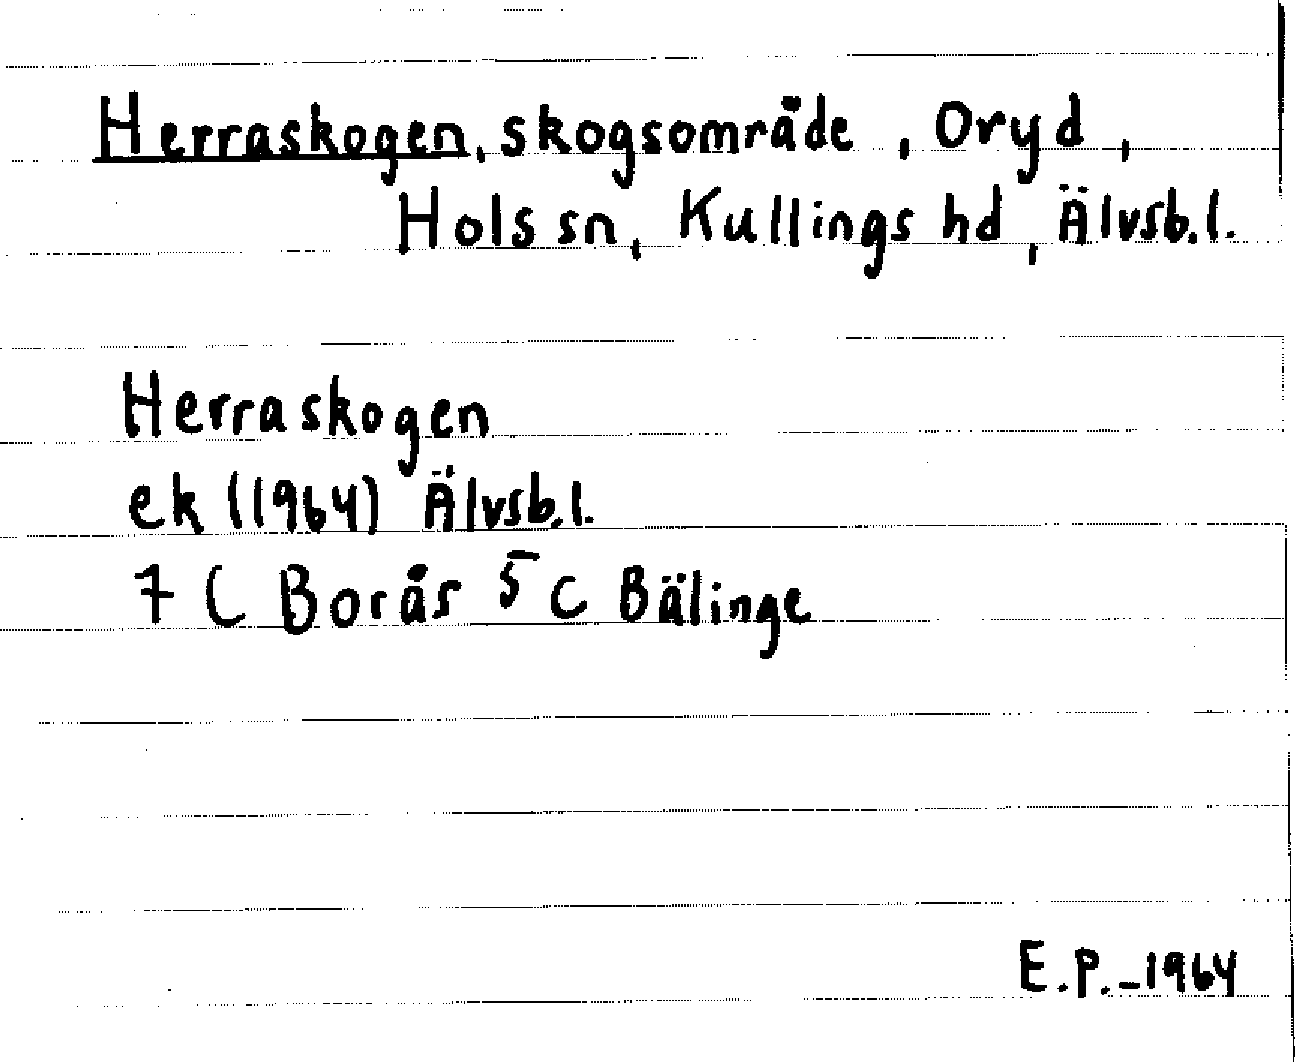 Herraskogen, skogsområde, Oryd,
Hols sn, Kullings hd, Älvsb.l.
Herraskogen
ek (1964) Älvsb.l.
7 C Borås 5 c Bälinge
E.P. - 1964